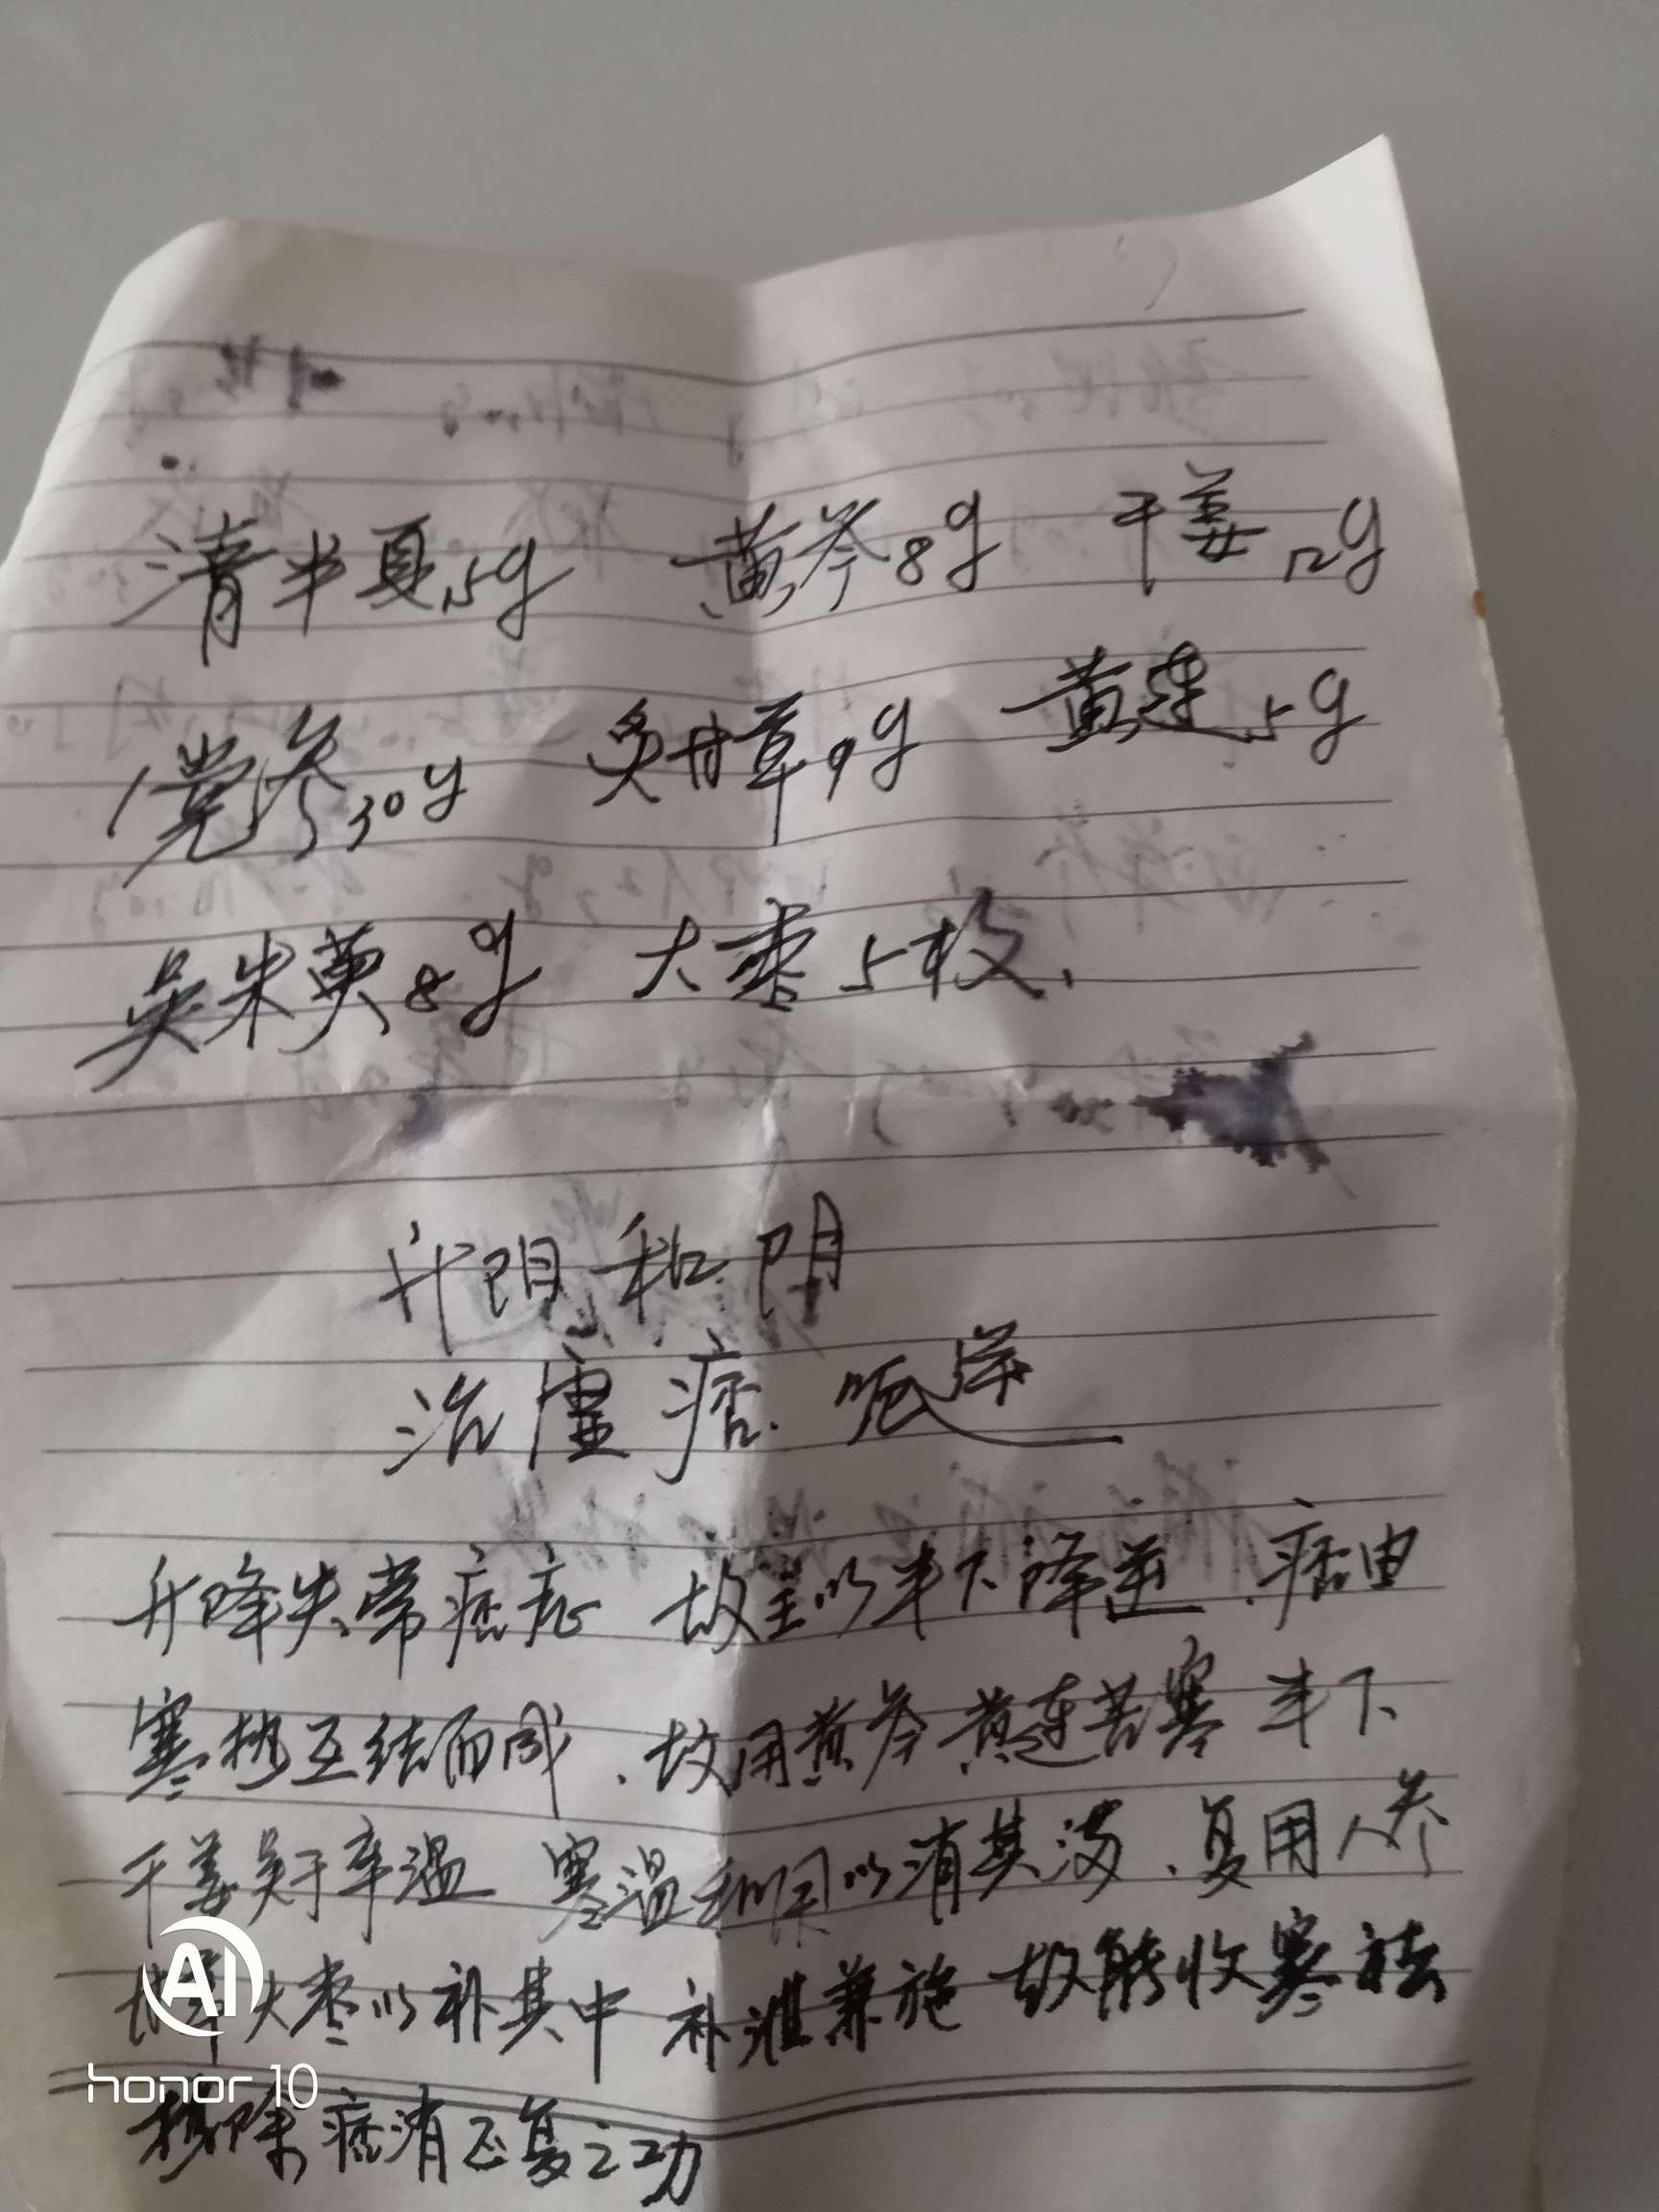 清半夏15g 黄芩8g 干姜12g
党参30g 炙甘草9g 黄连5g
吴朱萸8g 大枣5枚、
升阳和阴
治虚痞.呃逆
升降失常痞症 故主以半下降逆、痞由
寒热互结而成、故用黄芩黄连苦寒 半下
干姜吴于辛温 寒温 以消其满、复用人参
甘草大枣以补其中 补泄兼施 故能收寒祛
热除痞消正复之功
AI
honor 10